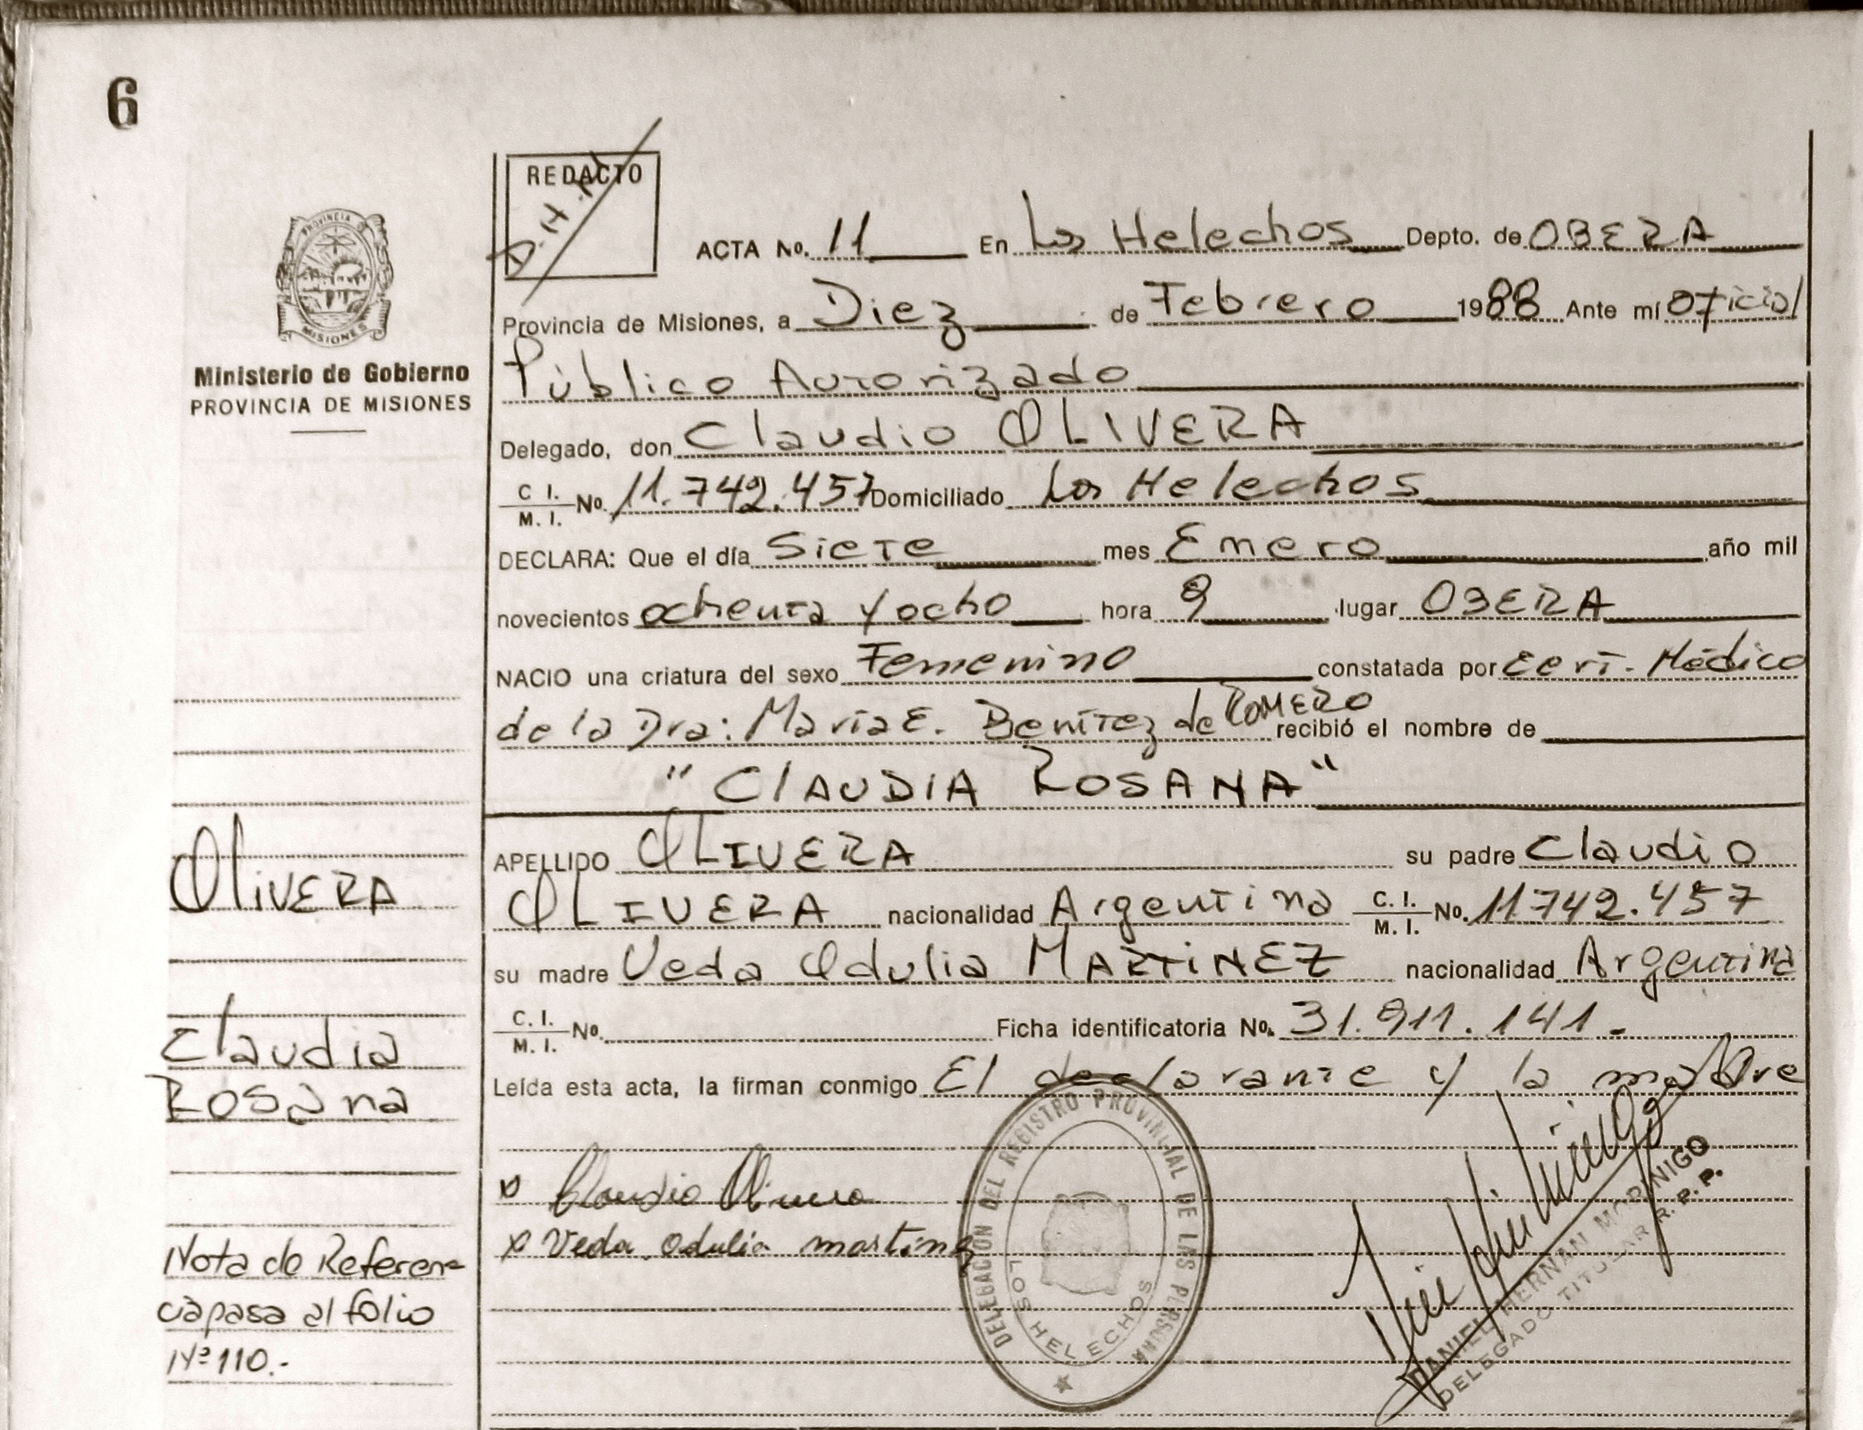 6
REDACTO
D.H.M
PROVINCIA D
MISIONES
Ministerio de Gobierno
PROVINCIA DE MISIONES
ACTA No. 11 En Los Helechos Depto. de OBERA
Provincia de Misiones, a Diez de Febrero 1988 Ante mí Oficial
Público Autorizado
Delegado, don Claudio OLIVERA
C. I. / M. I. No. 11.742.457 Domiciliado Los Helechos
DECLARA: Que el día Siete mes Enero año mil
novecientos ochenta y ocho hora 9 lugar OBERA
NACIO una criatura del sexo Femenino constatada por Cert. Médico
de la Dra: María E. Benítez de ROMERO recibió el nombre de
"CLAUDIA ROSANA"
APELLIDO OLIVERA su padre Claudio
OLIVERA nacionalidad Argentina C. I. / M. I. No. 11742.457
su madre Veda Odulia MARTINEZ nacionalidad Argentina
C. I. / M. I. No. Ficha identificatoria No. 31.911.141.-
Leída esta acta, la firman conmigo El declarante y la madre
x Claudio Olivera
x Veda Odulia martinez
DELEGACION DEL REGISTRO PROVINCIAL DE LAS PERSONA
LOS HELECHOS
DANIEL HERNAN MORINIGO
DELEGADO TITULAR R. P. P.
OLIVERA
Claudia
Rosana
Nota de Referen
cia pasa al folio
Nº 110.-